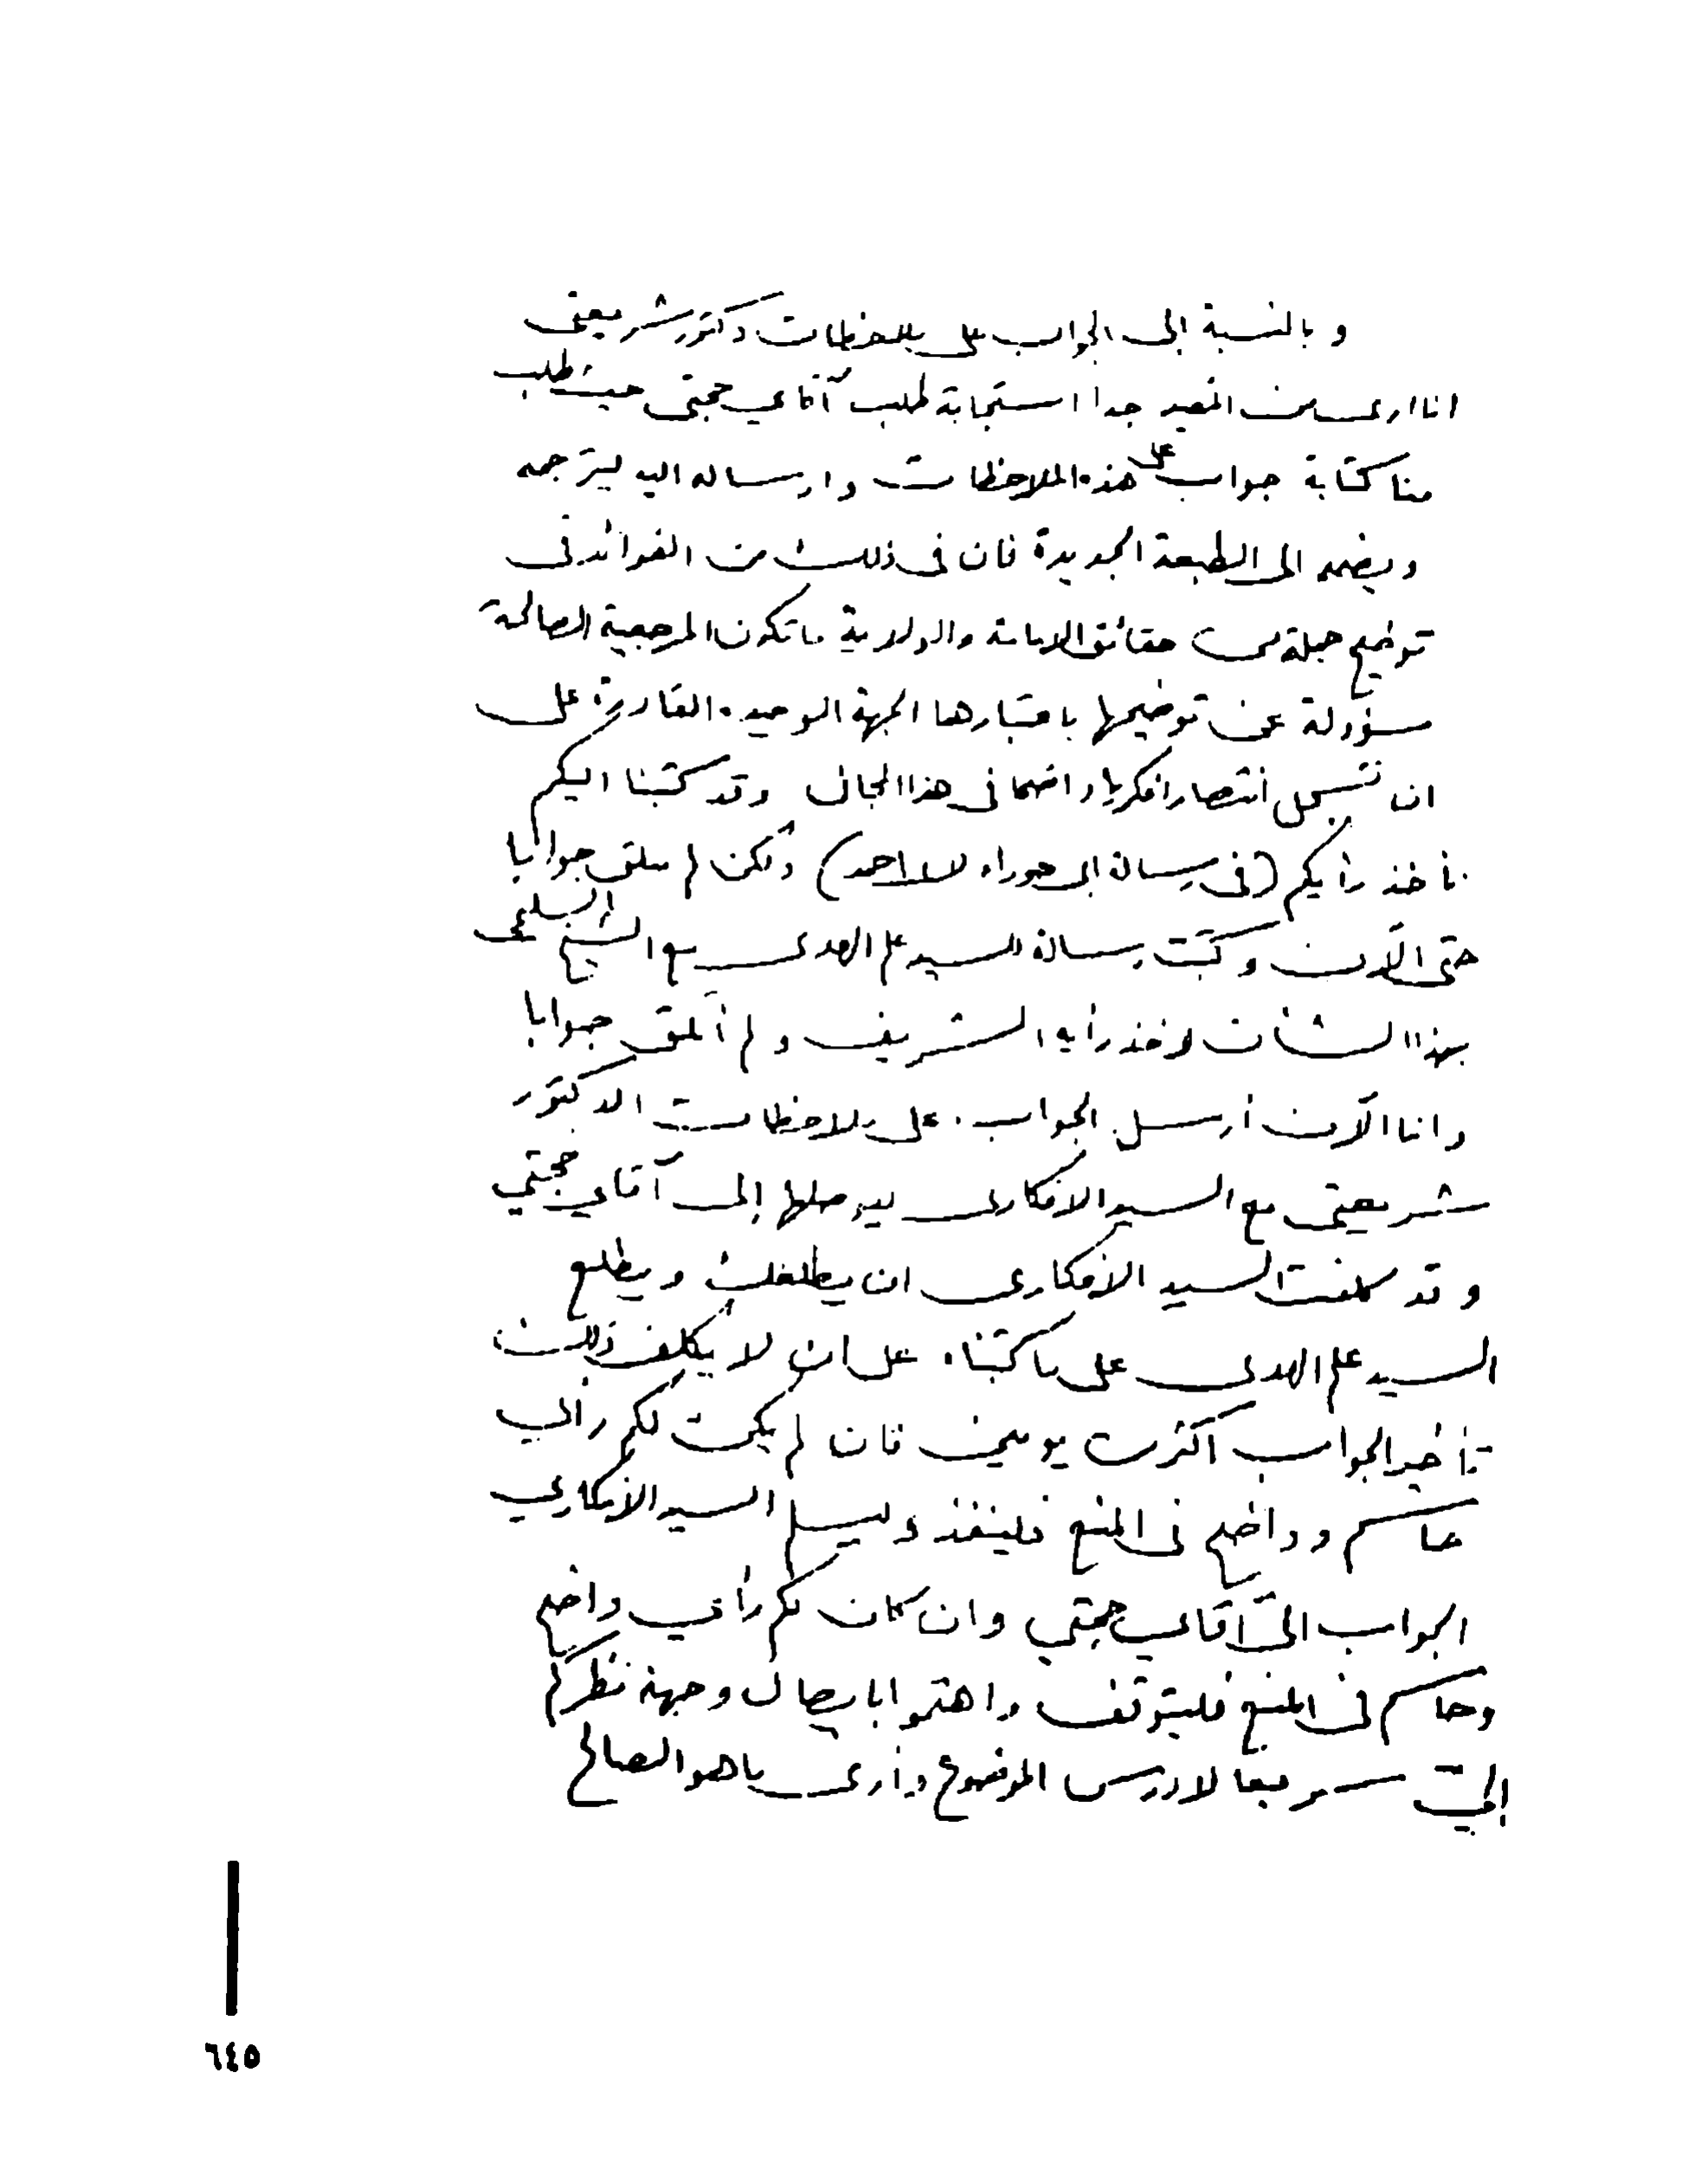 و بالنسبة إلى الجواب على ملاحظات دكتور شريعتى
انا ارى من المفيد جدا استجابة لطلب آقاي حجتى حيث طلب
منا كتابة جواب على هذه الملاحظات وارساله اليه ليترجمه
ويضمه الى الطبعة الجديدة فان فى ذلك من الفوائد فى
توضيح جملة من حقائق الامامة والولاية ما تكون المرجعية الصالحة
مسؤولة عن توضيحها باعتبارها الجهة الوحيده القادرة على
ان تسجل انتصارا فكريا واضحا فى هذا المجال وقد كتبنا اليكم
نأخذ رأيكم (فى رسالة إلى جوراء لسلا احمد) ولكن لم نتلق جوابا
حتى الآن وكتبت رسالة للسيد علم الهدى مع الشيخ السليمى
بهذا الشأن لاخذ رأيه الشريف ولم أتلق جوابا
وانا الآن أرسل الجواب على ملاحظات الدكتور
شريعتى مع السيد الافكارى ليوصلها إلى آقاي حجتي
و قد كلفت السيد الأفكارى ان يطلعك ويطلع
السيد علم الهدى على ما كتبناه على ان لا يكلف ذلك
تأخير الجواب اكثر من يومين فان لم يكن لكم رأي
حاسم وواضح فى المنع فلينفذ وليسلم السيد الأفكاري
الجواب الى آقاي حجتي وان كان لكم رأي واضح
وحاسم فى المنع فليتوقف واهتموا بايصال وجهة نظركم
إليّ سريعا لادرس الموضوع وأرى ما هو الصالح
٦٤٥